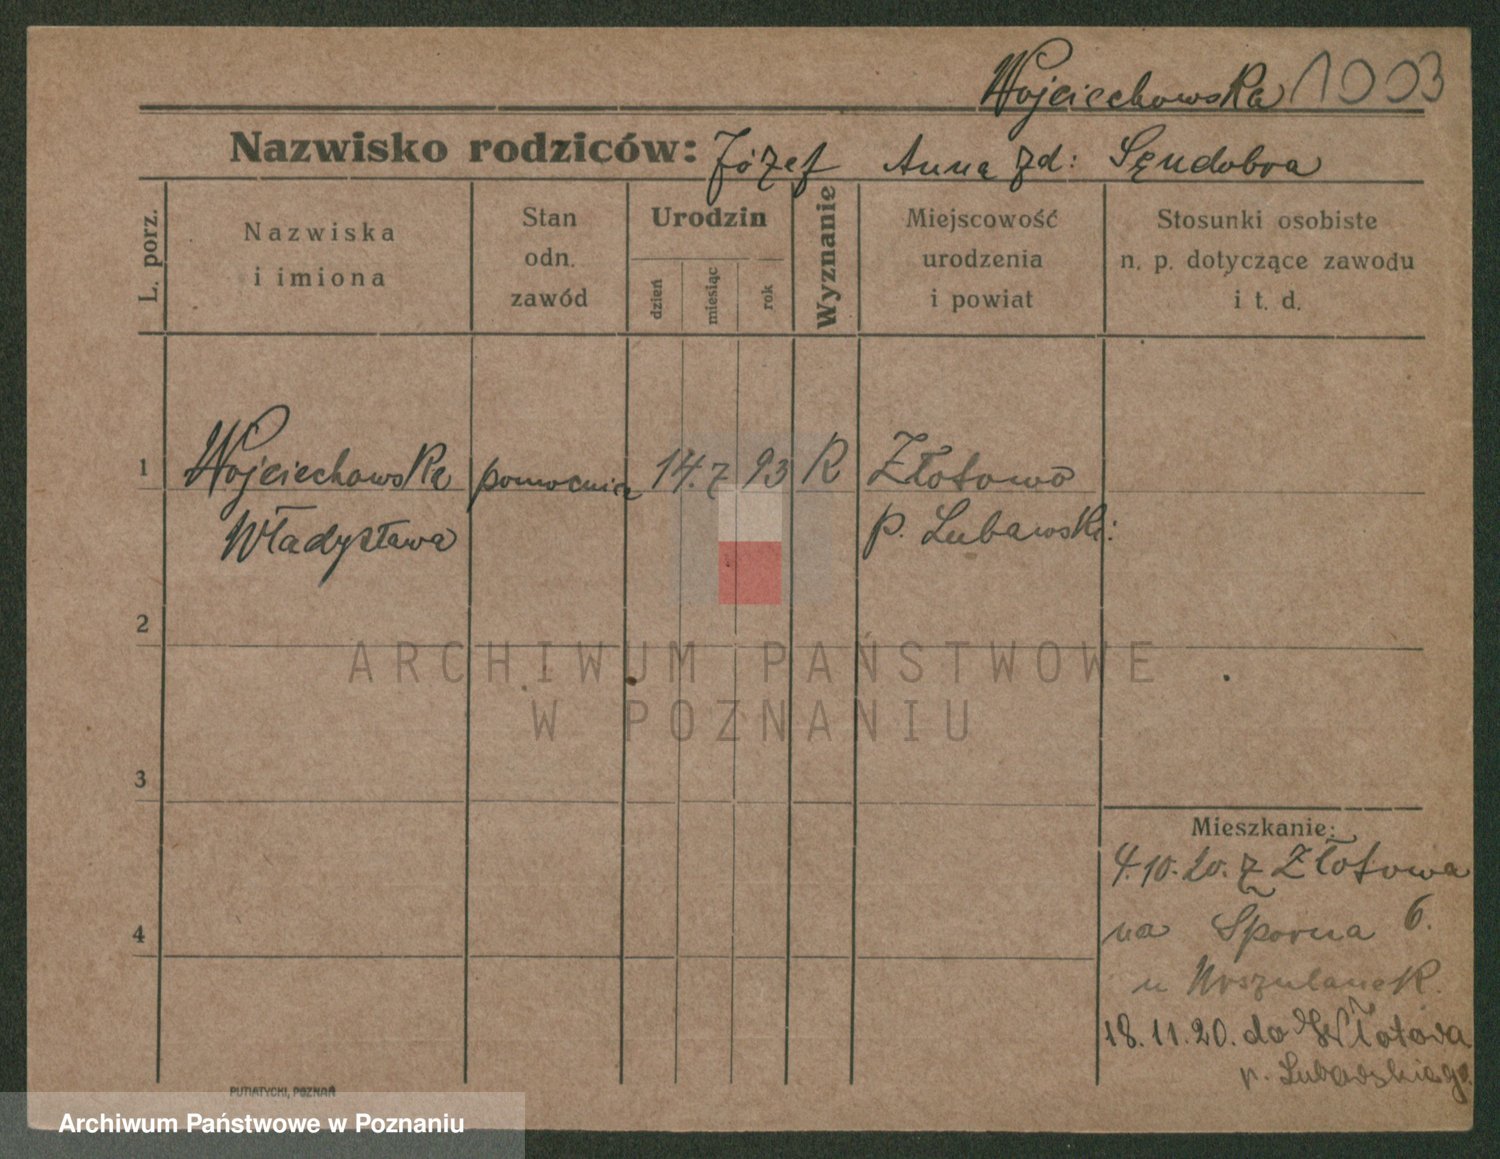 Wojciechowska 1003
Nazwisko rodziców: Józef Anna zd: Sendobra
L. porz.
Nazwiska
i imiona
Stan
odn.
zawód
Urodzin
dzień
miesiąc
rok
Wyznanie
Miejscowość
urodzenia
i powiat
Stosunki osobiste
n. p. dotyczące zawodu
i t. d.
1 Wojciechowska pomocnica 14. 7 93 R Złotowo
Władysława p. Lubawski:
2
ARCHIWUM PAŃSTWOWE
W POZNANIU
3
Mieszkanie:
4.10.20. z Złotowa
4
na Sporna 6.
u Urszulanek.
18.11.20. do Złotowa
p. Lubawskiego.
PUTIATYCKI, POZNAŃ
Archiwum Państwowe w Poznaniu